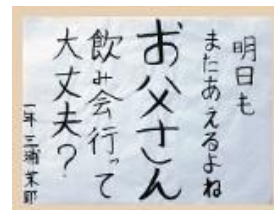 明日も
またあえるよね
お父さん
飲み会行って
大丈夫？
一年 三浦